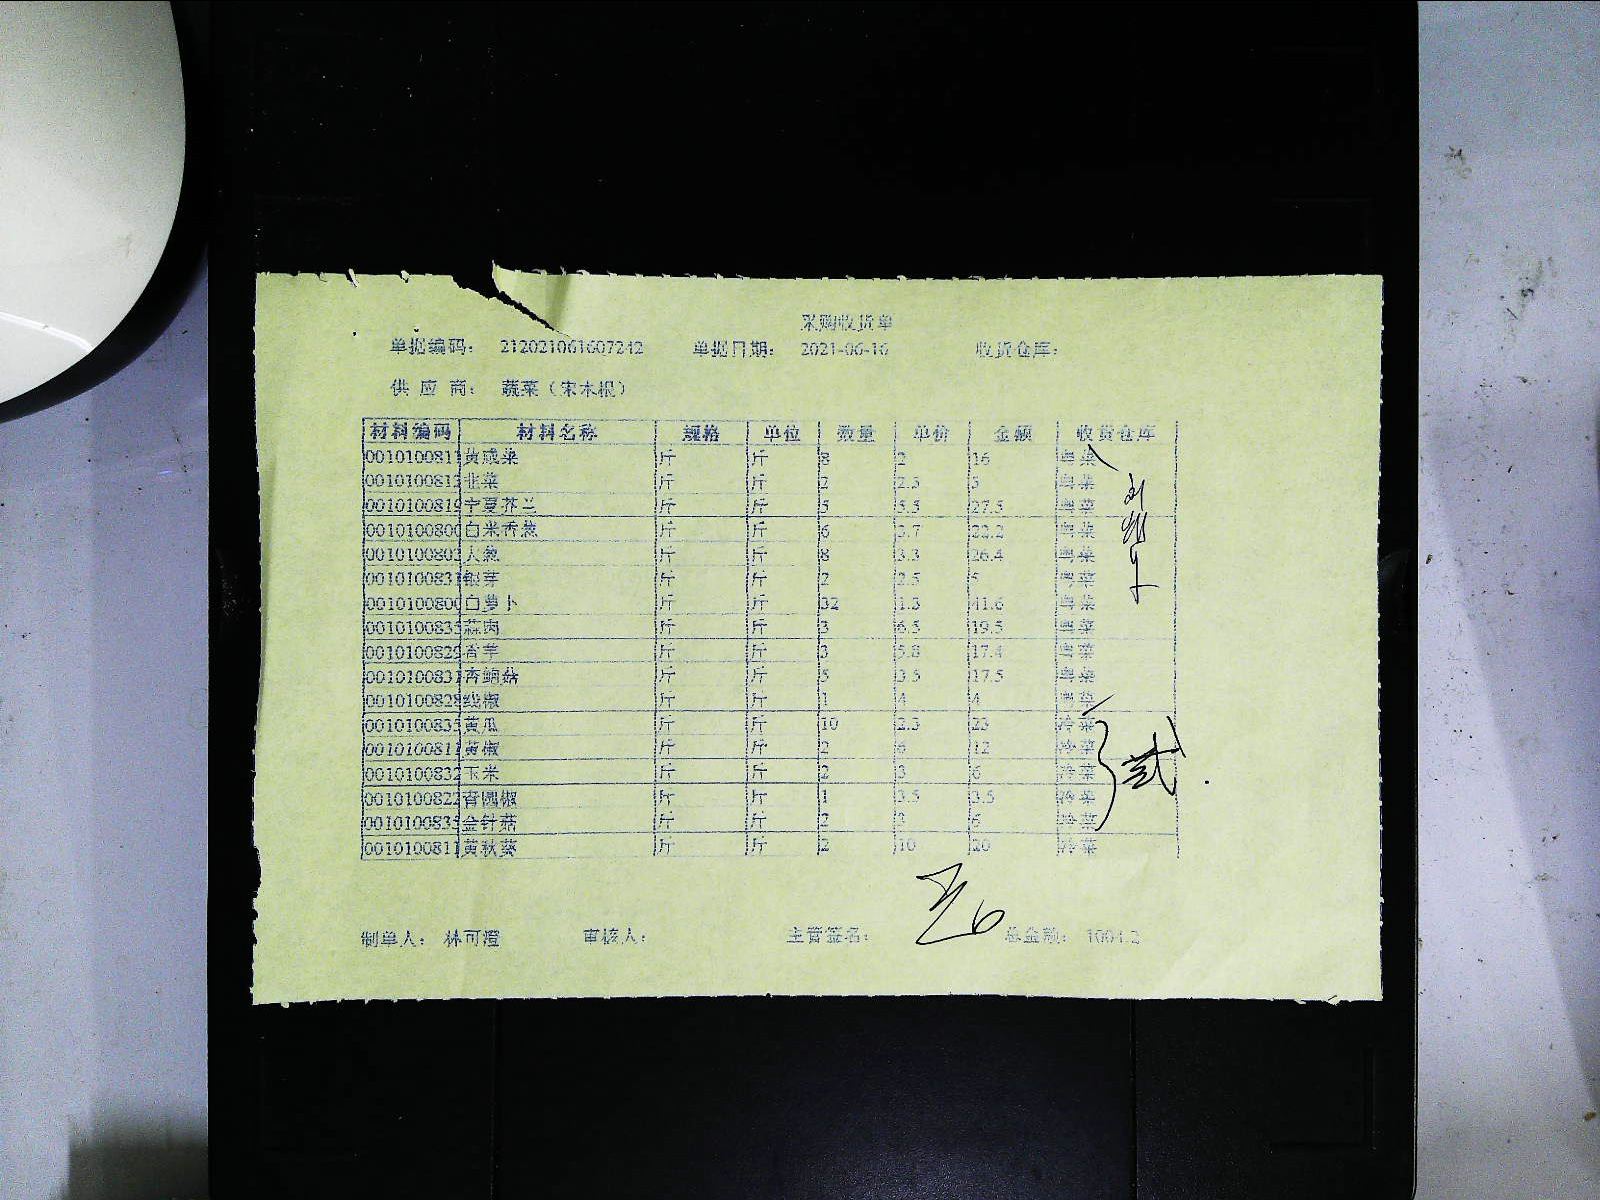 采购收货单
单据编码： 212021061607242 单据日期： 2021-06-16 收货仓库：
供 应 商： 蔬菜（宋木根）
材料编码 材料名称 规格 单位 数量 单价 金额 收货仓库
0010100811 黄咸菜 斤 斤 8 2 16 粤菜
001010081 韭菜 斤 斤 2 2.5 5 粤菜
0010100819 宁夏芥兰 斤 斤 5 5.5 27.5 粤菜
0010100800 白米香葱 斤 斤 6 3.7 22.2 粤菜
001010080 大葱 斤 斤 8 3.3 26.4 粤菜
001010083 银芽 斤 斤 2 2.5 5 粤菜
0010100800 白萝卜 斤 斤 32 1.3 41.6 粤菜
001010083 蒜肉 斤 斤 3 6.5 19.5 粤菜
0010100829 香芋 斤 斤 3 5.8 17.4 粤菜
001010083 香鲍菇 斤 斤 5 3.5 17.5 粤菜
0010100828 线椒 斤 斤 1 4 4 粤菜
001010083 黄瓜 斤 斤 10 2.3 23 冷菜
0010100811 黄椒 斤 斤 2 6 12 冷菜
0010100832 玉米 斤 斤 2 3 6 冷菜
0010100822 青圆椒 斤 斤 1 3.5 3.5 冷菜
001010083 金针菇 斤 斤 2 3 6 冷菜
0010100811 黄秋葵 斤 斤 2 10 20 冷菜
制单人： 林可澄 审核人： 主管签名： 总金额： 1004.2